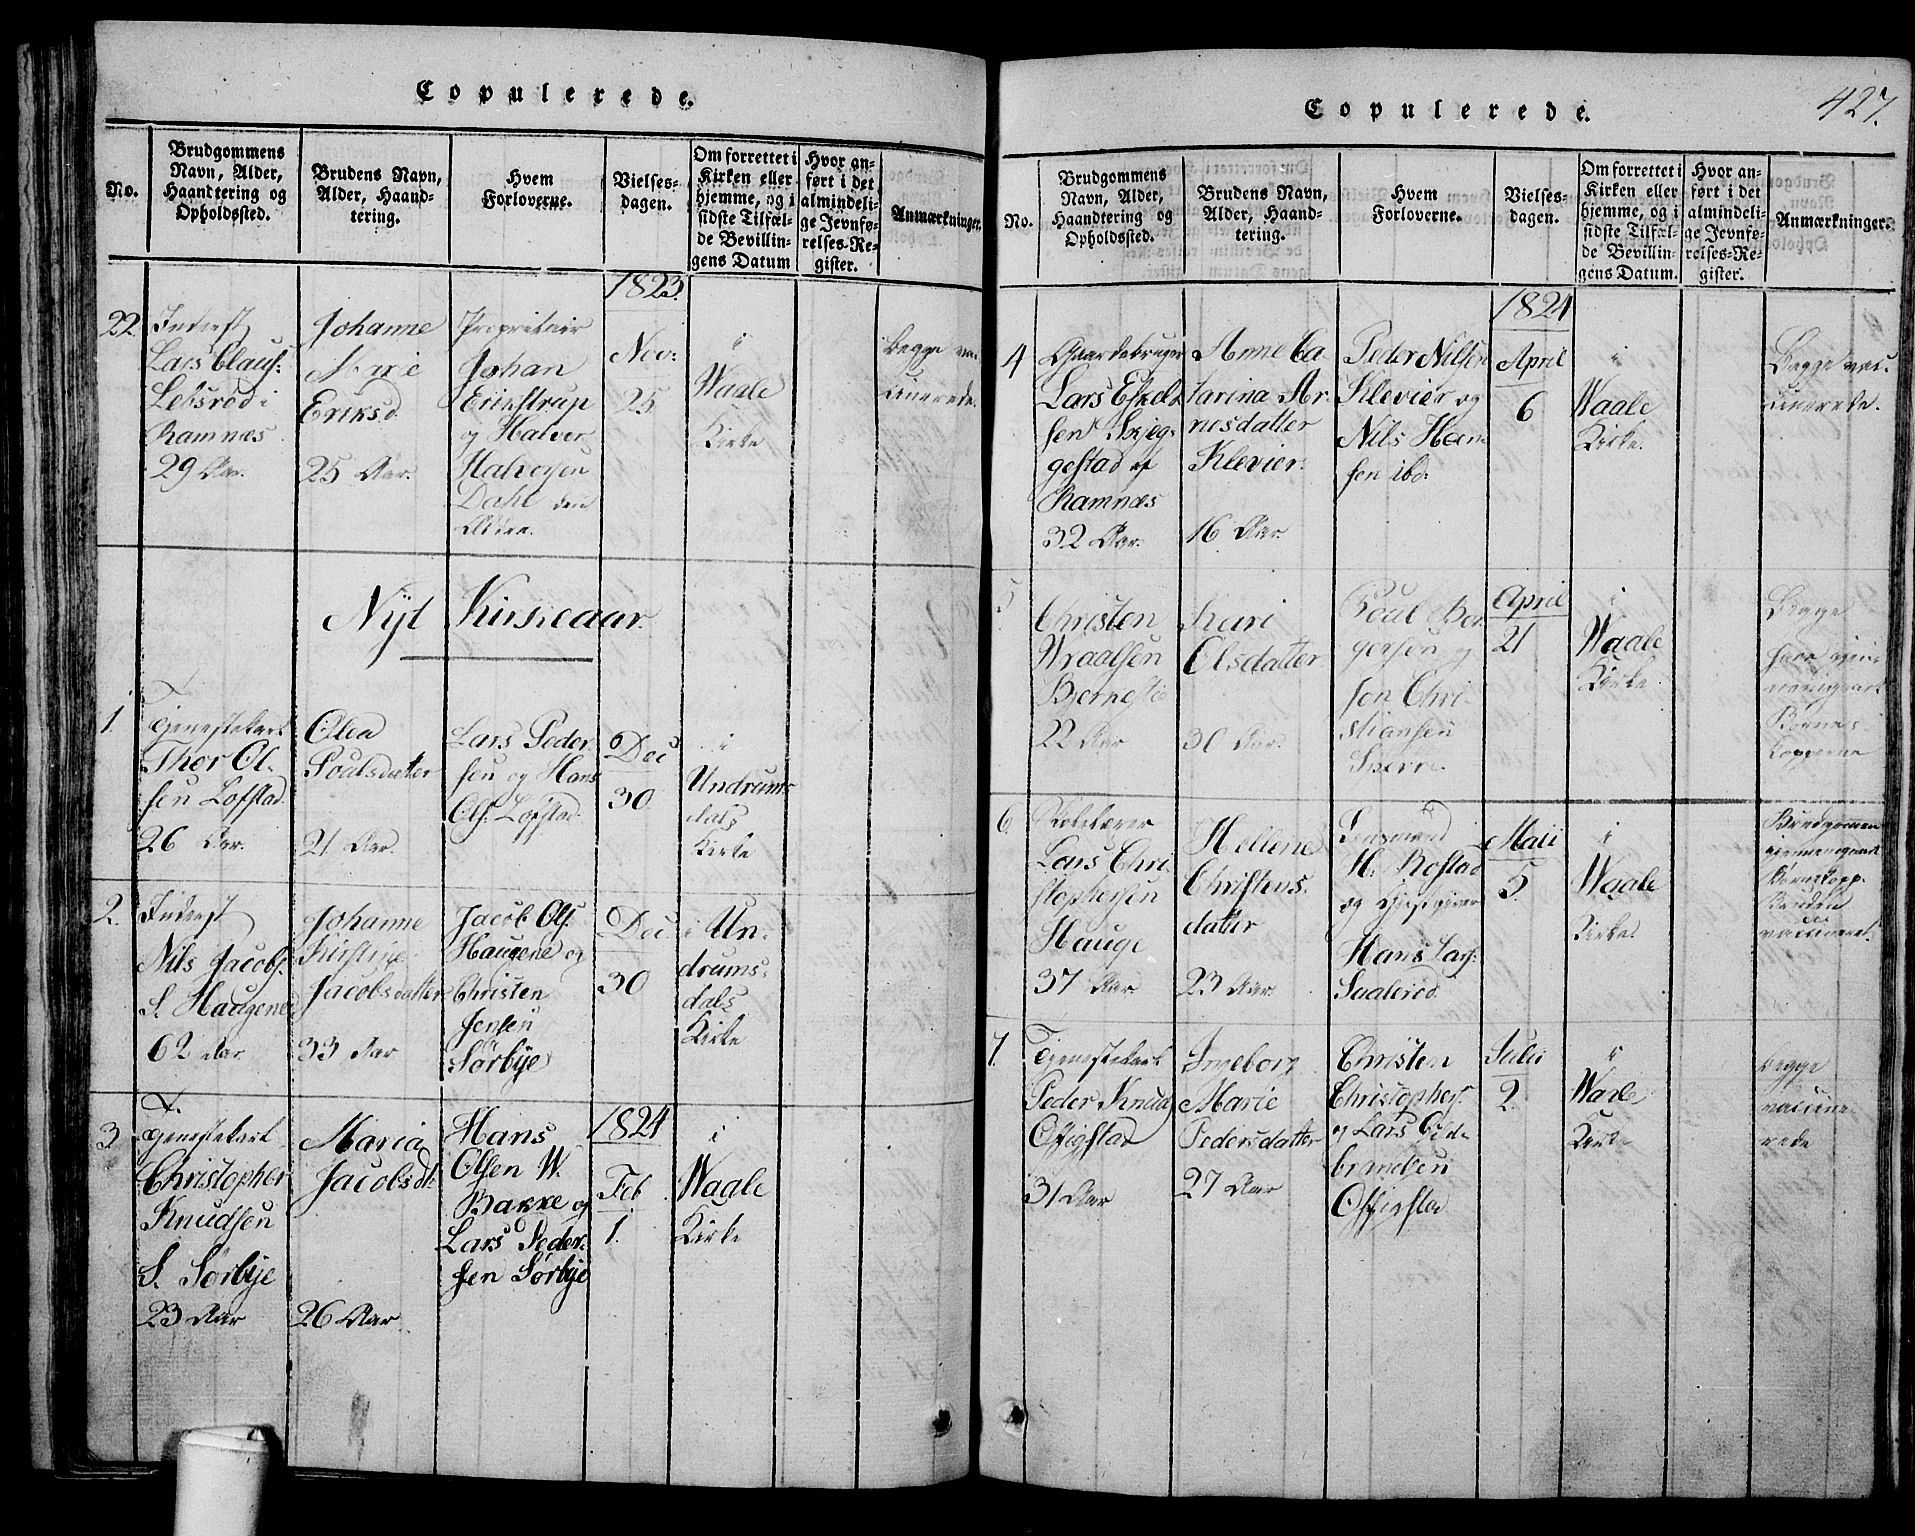 Copulerede.
No.
Brudgommens
Navn, Alder,
Haandtering og
Opholdssted.
Brudens Navn,
Alder, Haand-
tering.
Hvem
Forloverne.
Vielses-
dagen.
Om forrettet i
Kirken eller
hjemme, og i
sidste Tilfæl-
de Bevillin-
gens Datum
Hvor an-
ført i det
almindeli-
ge Jevnfø-
relses-Re-
gister.
Anmærkninger.
22
Inderst
Lars Clauss:
Lebsrød i
Ramnæs
29 Aar.
Johanne
Marie
Eriksd.
25 Aar.
Proprietair
Johan
Erikstrup
og Halver
Halvorsen
Dahl den
Eldre.
1823.
Nov:
25
i
Waale
Kirke
Begge vac-
cinerede.
Nyt Kirkeaar.
1.
Tjenestekarl
Thor Ol-
sen Lofstad.
26 Aar.
Olea
Poulsdatter
21 Aar.
Lars Peder-
sen og Hans
Ols. Lofstad.
Dec
30
i
Undrums
dals
Kirke
2.
Inderst
Nils Jacobs.
S. Haugene
62 Aar
Johanne
Kirstine
Jacobsdatter
33 Aar
Jacob Ols.
Haugene og
Christen
Jensen
Sørbye
Dec.
30
i Un-
drums-
dals
Kirke
3
Tjenestekarl
Christopher
Knudsen
S. Sørbye
23 Aar
Maria
Jacobsdt:
26 Aar.
Hans
Olsen W.
Bakke og
Lars Peder-
sen Sørbye
1824
Feb
1.
i
Waale
Kirke
Copulerede.
427.
No.
Brudgommens
Navn, Alder,
Haandtering og
Opholdssted.
Brudens Navn,
Alder, Haand-
tering.
Hvem
Forloverne.
Vielses-
dagen.
Om forrettet i
Kirken eller
hjemme, og i
sidste Tilfæl-
de Bevillin-
gens Datum.
Hvor an-
ført i det
almindeli-
ge Jevnfø-
relses-Re-
gister.
Anmærkninger.
4
Gaardebruger
Lars Eskel-
sen Skjeg-
gestad af
Ramnæs
32 Aar.
Anne Ca-
tarina Ar-
nesdatter
Klevier.
16 Aar.
Peder Nilsen
Klevier og
Nils Hen-
sen ibd:
1824
April
6
i
Waale
Kirke.
Begge vac-
cinerede.
5
Christen
Wraalsen
22 Aar
Kari
Olsdatter
30 Aar.
Poul Bor-
gersen og
sen Chri-
stiansen
April
21
i
Waale
Kirke
Begge
have gjen-
nemgaaet
Børne-
kopperne
6
Skolelærer
Lars Chri-
stophersen
Hauge
37 Aar
Hellene
Christens-
datter
23 Aar.
Lensmand
H. Rostad
og Gjestgiver
Hans Lars.
Saalerød.
Maii
5.
i
Waale
Kirke
Brudgommen
gjennemgaaet
Børnekopp.
Bruden
vaccineret.
7.
Tjenestekarl
Peder Knud
31 Aar
Ingeborg
Marie
Pedersdatter
27 Aar
Christen
Christophers.
og Lars Gul-
brandsen
Julii
2.
i
Waale
Kirke
begge
vaccine-
rede